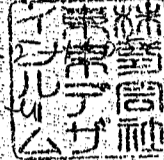 株式会社
東京デザ
インルーム